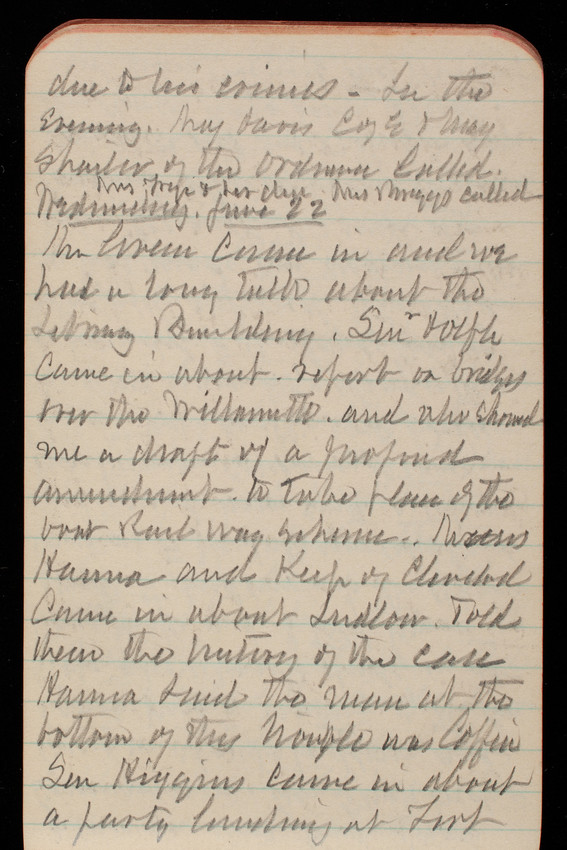 due to his crimes - In the
Evening. Maj Davis Cog & May
of the Ordnance Called.
Mrs & her Mrs called
Wednesday. June 22
Mr Green Came in and we
had a long talk about the
Library Building. Senr Dolph
Came in about. report on bridges
over the Willamette. and also showed
me a draft of a proposed
amendment. to take place of the
boat Rail way scheme..
Hanna and Keep of Cleveland
Came in about Ludlow. Told
them the history of the case
Hanna said the man at the
bottom of this trouble was Coffin
Sen Higgins came in about
a party lunching at Fort